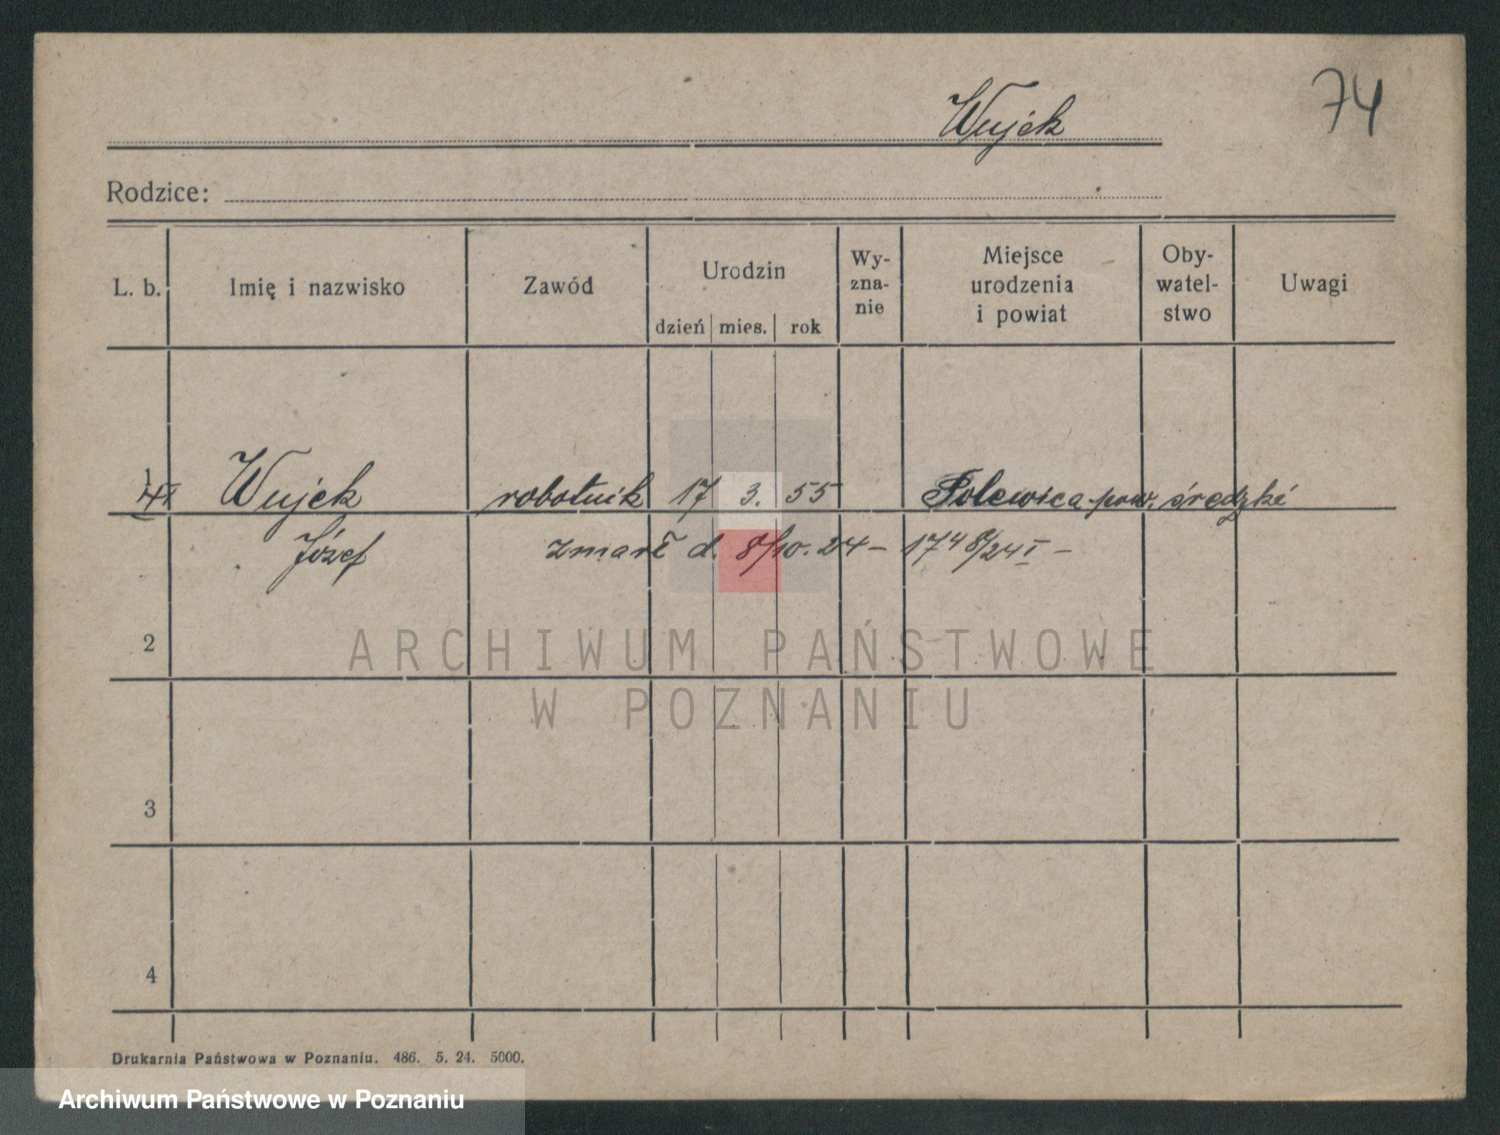 Wujek
74
Rodzice:
L. b. Imię i nazwisko Zawód Urodzin dzień mies. rok Wy-zna-nie Miejsce urodzenia i powiat Oby-watel-stwo Uwagi
Wujek robotnik 17 3. 55 pow. średzki
Józef zmarł d. 8/10. 24 – 174 8/24 I –
2
ARCHIWUM PAŃSTWOWE
W POZNANIU
3
4
Drukarnia Państwowa w Poznaniu. 486. 5. 24. 5000.
Archiwum Państwowe w Poznaniu